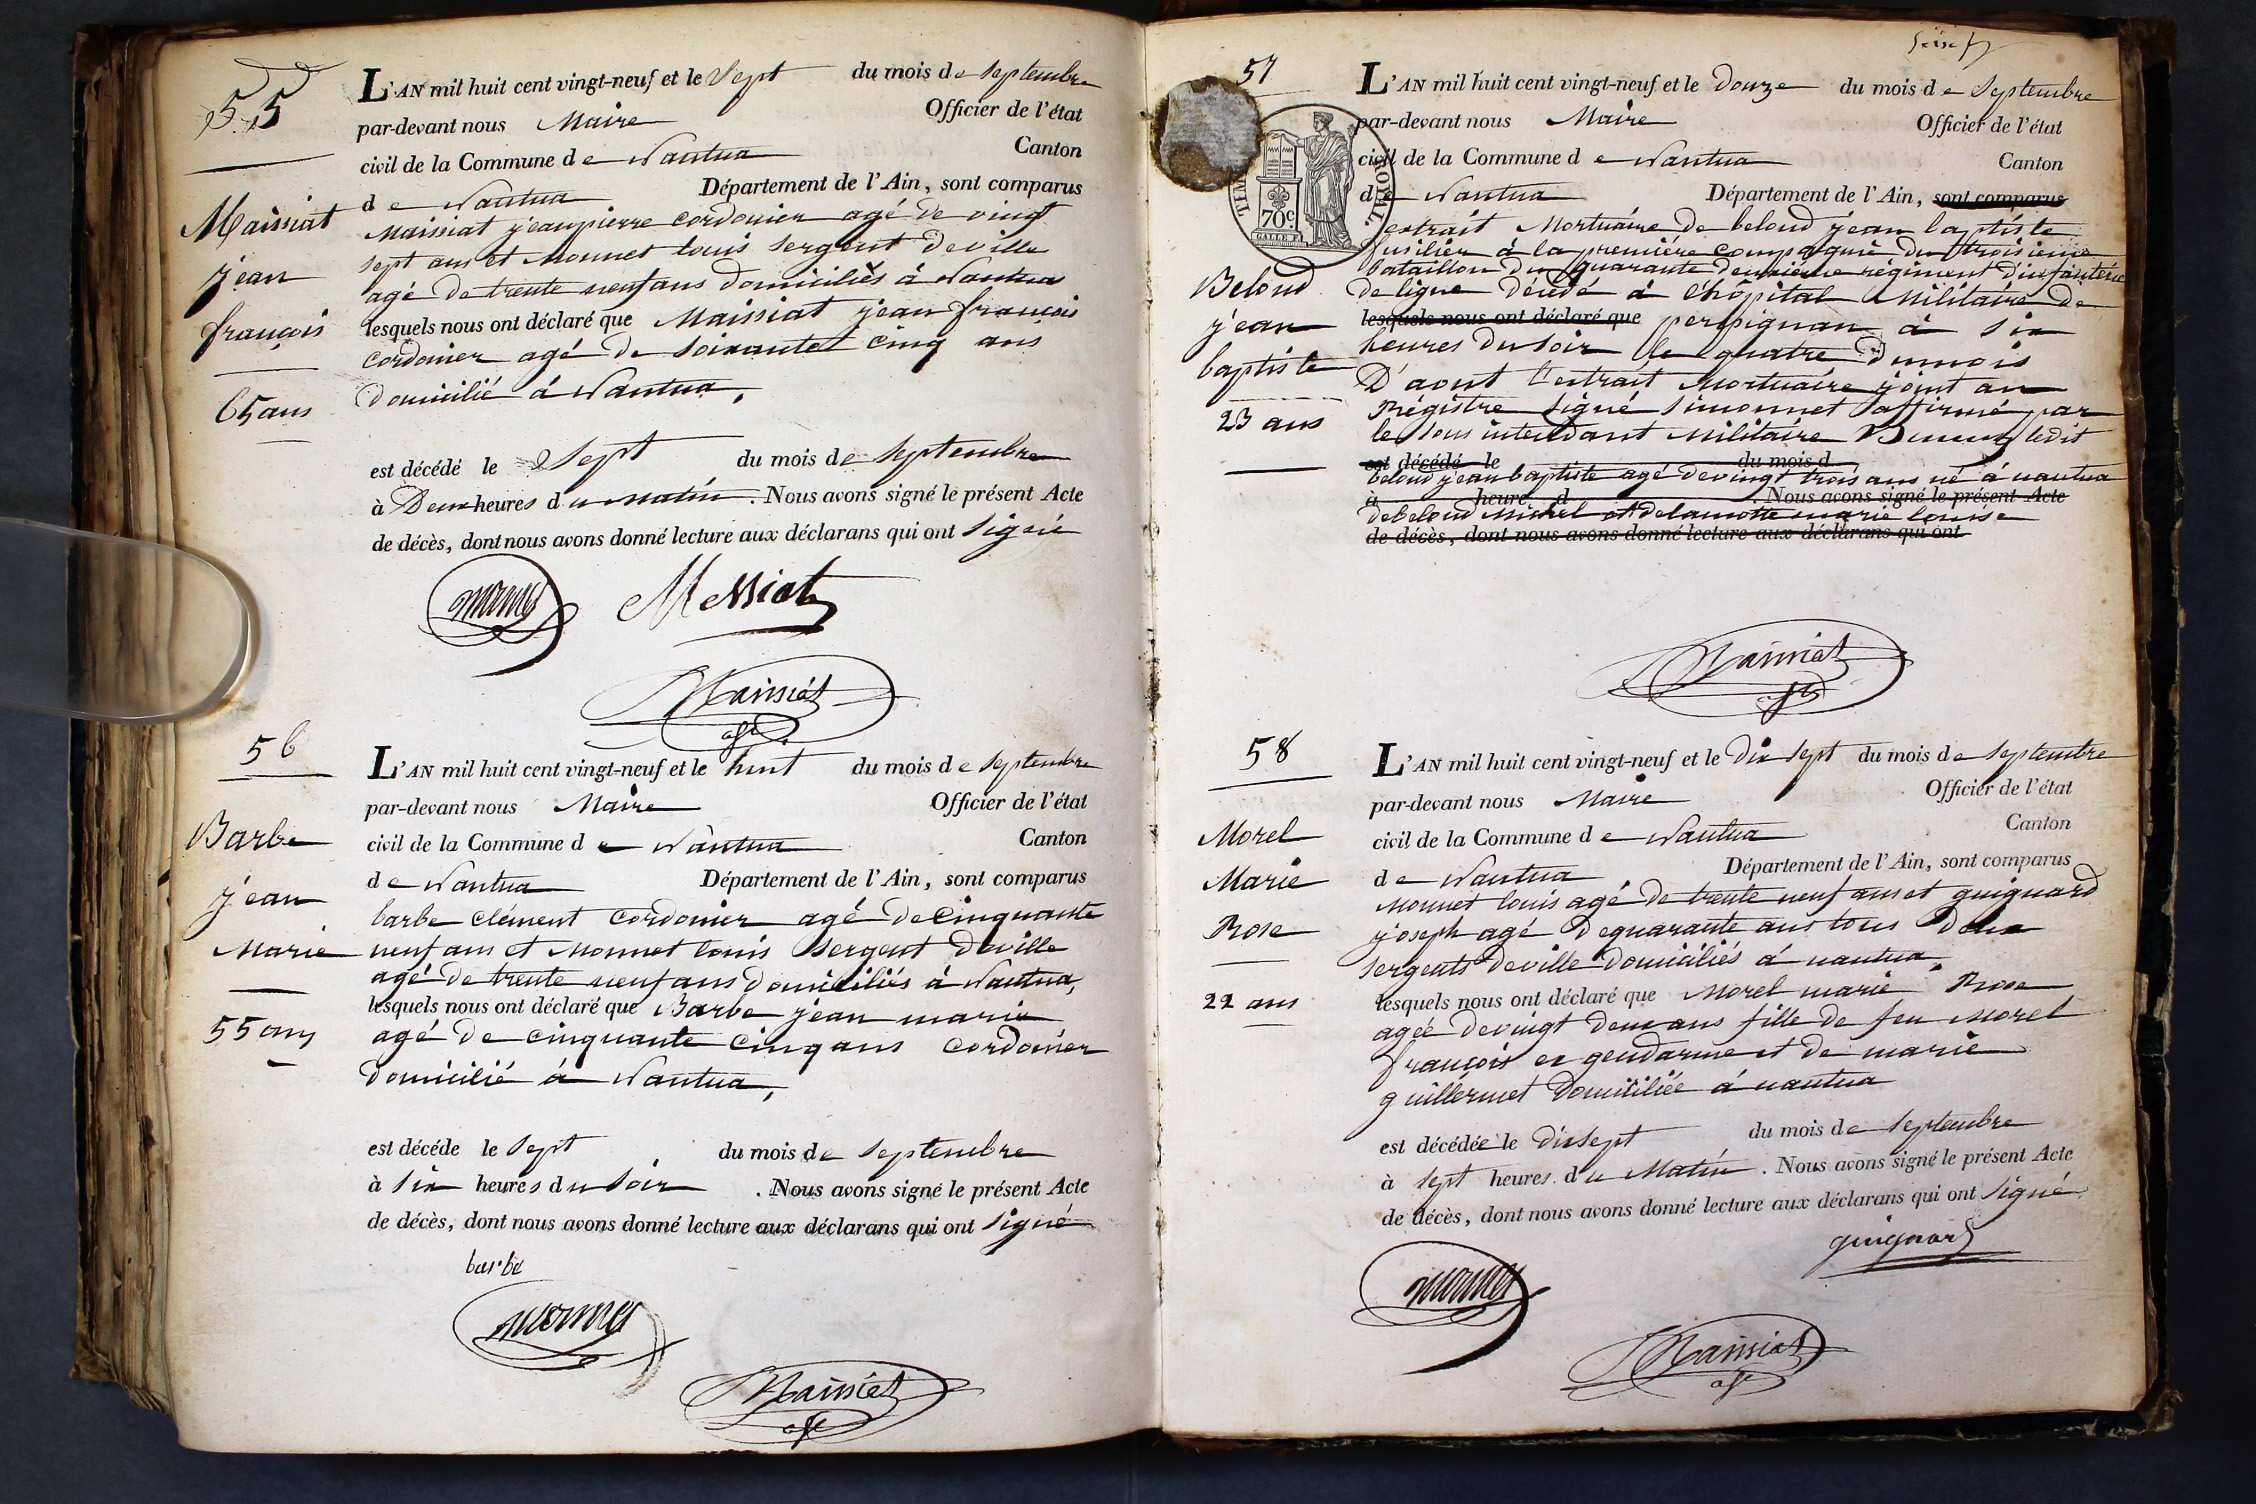 55
Maissiat
jean
françois
65 ans
L'AN mil huit cent vingt-neuf et le Sept du mois de septembre
par-devant nous Maire Officier de l'état
civil de la Commune de Nantua Canton
de Nantua Département de l'Ain, sont comparus
Maissiat jean pierre cordonier agé de vingt
sept ans et Monnet louis sergent de ville
agé de trente neuf ans domiciliés à Nantua
lesquels nous ont déclaré que Maissiat jean françois
cordonier agé de soixante cinq ans
domicilié à Nantua,
est décédé le Sept du mois de septembre
à Deux heures du matin. Nous avons signé le présent Acte
de décès, dont nous avons donné lecture aux déclarans qui ont signé
monnet Messiat
Maissiat
56
Barbe
jean
Marie
55 ans
L'AN mil huit cent vingt-neuf et le huit du mois de septembre
par-devant nous Maire Officier de l'état
civil de la Commune de Nantua Canton
de Nantua Département de l'Ain, sont comparus
barbe clément cordonier agé de cinquante
neuf ans et Monnet louis sergent de ville
agé de trente neuf ans domiciliés à Nantua,
lesquels nous ont déclaré que Barbe jean marie
agé de cinquante cinq ans cordonier
domicilié à Nantua,
est décédé le sept du mois de septembre
à six heures du soir. Nous avons signé le présent Acte
de décès, dont nous avons donné lecture aux déclarans qui ont signé
barbe
monnet
Maissiat
57
TIMBRE ROYAL
70c
Beloud
jean
baptiste
23 ans
L'AN mil huit cent vingt-neuf et le Douze du mois de septembre
par-devant nous Maire Officier de l'état
civil de la Commune de Nantua Canton
de Nantua Département de l'Ain, sont comparus
extrait Mortuaire de beloud jean baptiste
fusilier à la première compagnie du troisieme
bataillon du quarante deuxième régiment d'infanterie
de ligne décédé à l'hôpital Militaire de
lesquels nous ont déclaré que perpignan à six
heures du soir le quatre du mois
D'aout l'extrait Mortuaire joint au
Régistre signé simonnet affirmé par
le sous intendant Militaire ledit
est décédé le du mois d
beloud jean baptiste agé de vingt trois ans né à nantua
à heure d . Nous avons signé le présent Acte
de beloud Michel et delamotte marie louise
de décès, dont nous avons donné lecture aux déclarans qui ont
Maissiat
58
Morel
Marie
Rose
22 ans
L'AN mil huit cent vingt-neuf et le Dix sept du mois de septembre
par-devant nous Maire Officier de l'état
civil de la Commune de Nantua Canton
de Nantua Département de l'Ain, sont comparus
Monnet louis agé de trente neuf ans et guignard
joseph agé de quarante ans tous deux
sergents de ville domiciliés à nantua
lesquels nous ont déclaré que Morel marie Rose
agée de vingt deux ans fille de feu Morel
françois ex gendarme et de marie
guillermet domiciliée à nantua
est décédée le dix sept du mois de septembre
à sept heures du Matin. Nous avons signé le présent Acte
de décès, dont nous avons donné lecture aux déclarans qui ont signé
guignard
monnet
Maissiat